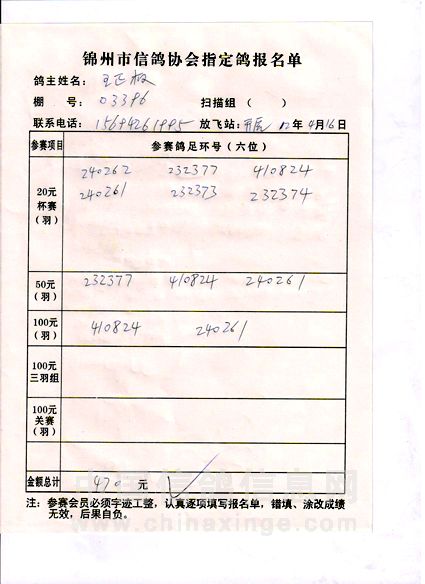 锦州市信鸽协会指定鸽报名单
鸽主姓名：王正权
棚 号：03396 扫描组（ ）
联系电话：15694261995 放飞站：开原 12年4月16日
参赛项目 参赛鸽足环号（六位）
20元杯赛（羽） 240262 232377 410824
240261 232373 232374
50元（羽） 232377 410824 240261
100元（羽） 410824 240261
100元三羽组
100元关赛（羽）
金额总计 470 元
注：参赛会员必须字迹工整，认真逐项填写报名单，错填、涂改成绩
无效，后果自负。
中国信鸽信息网
www.chinaxinge.com